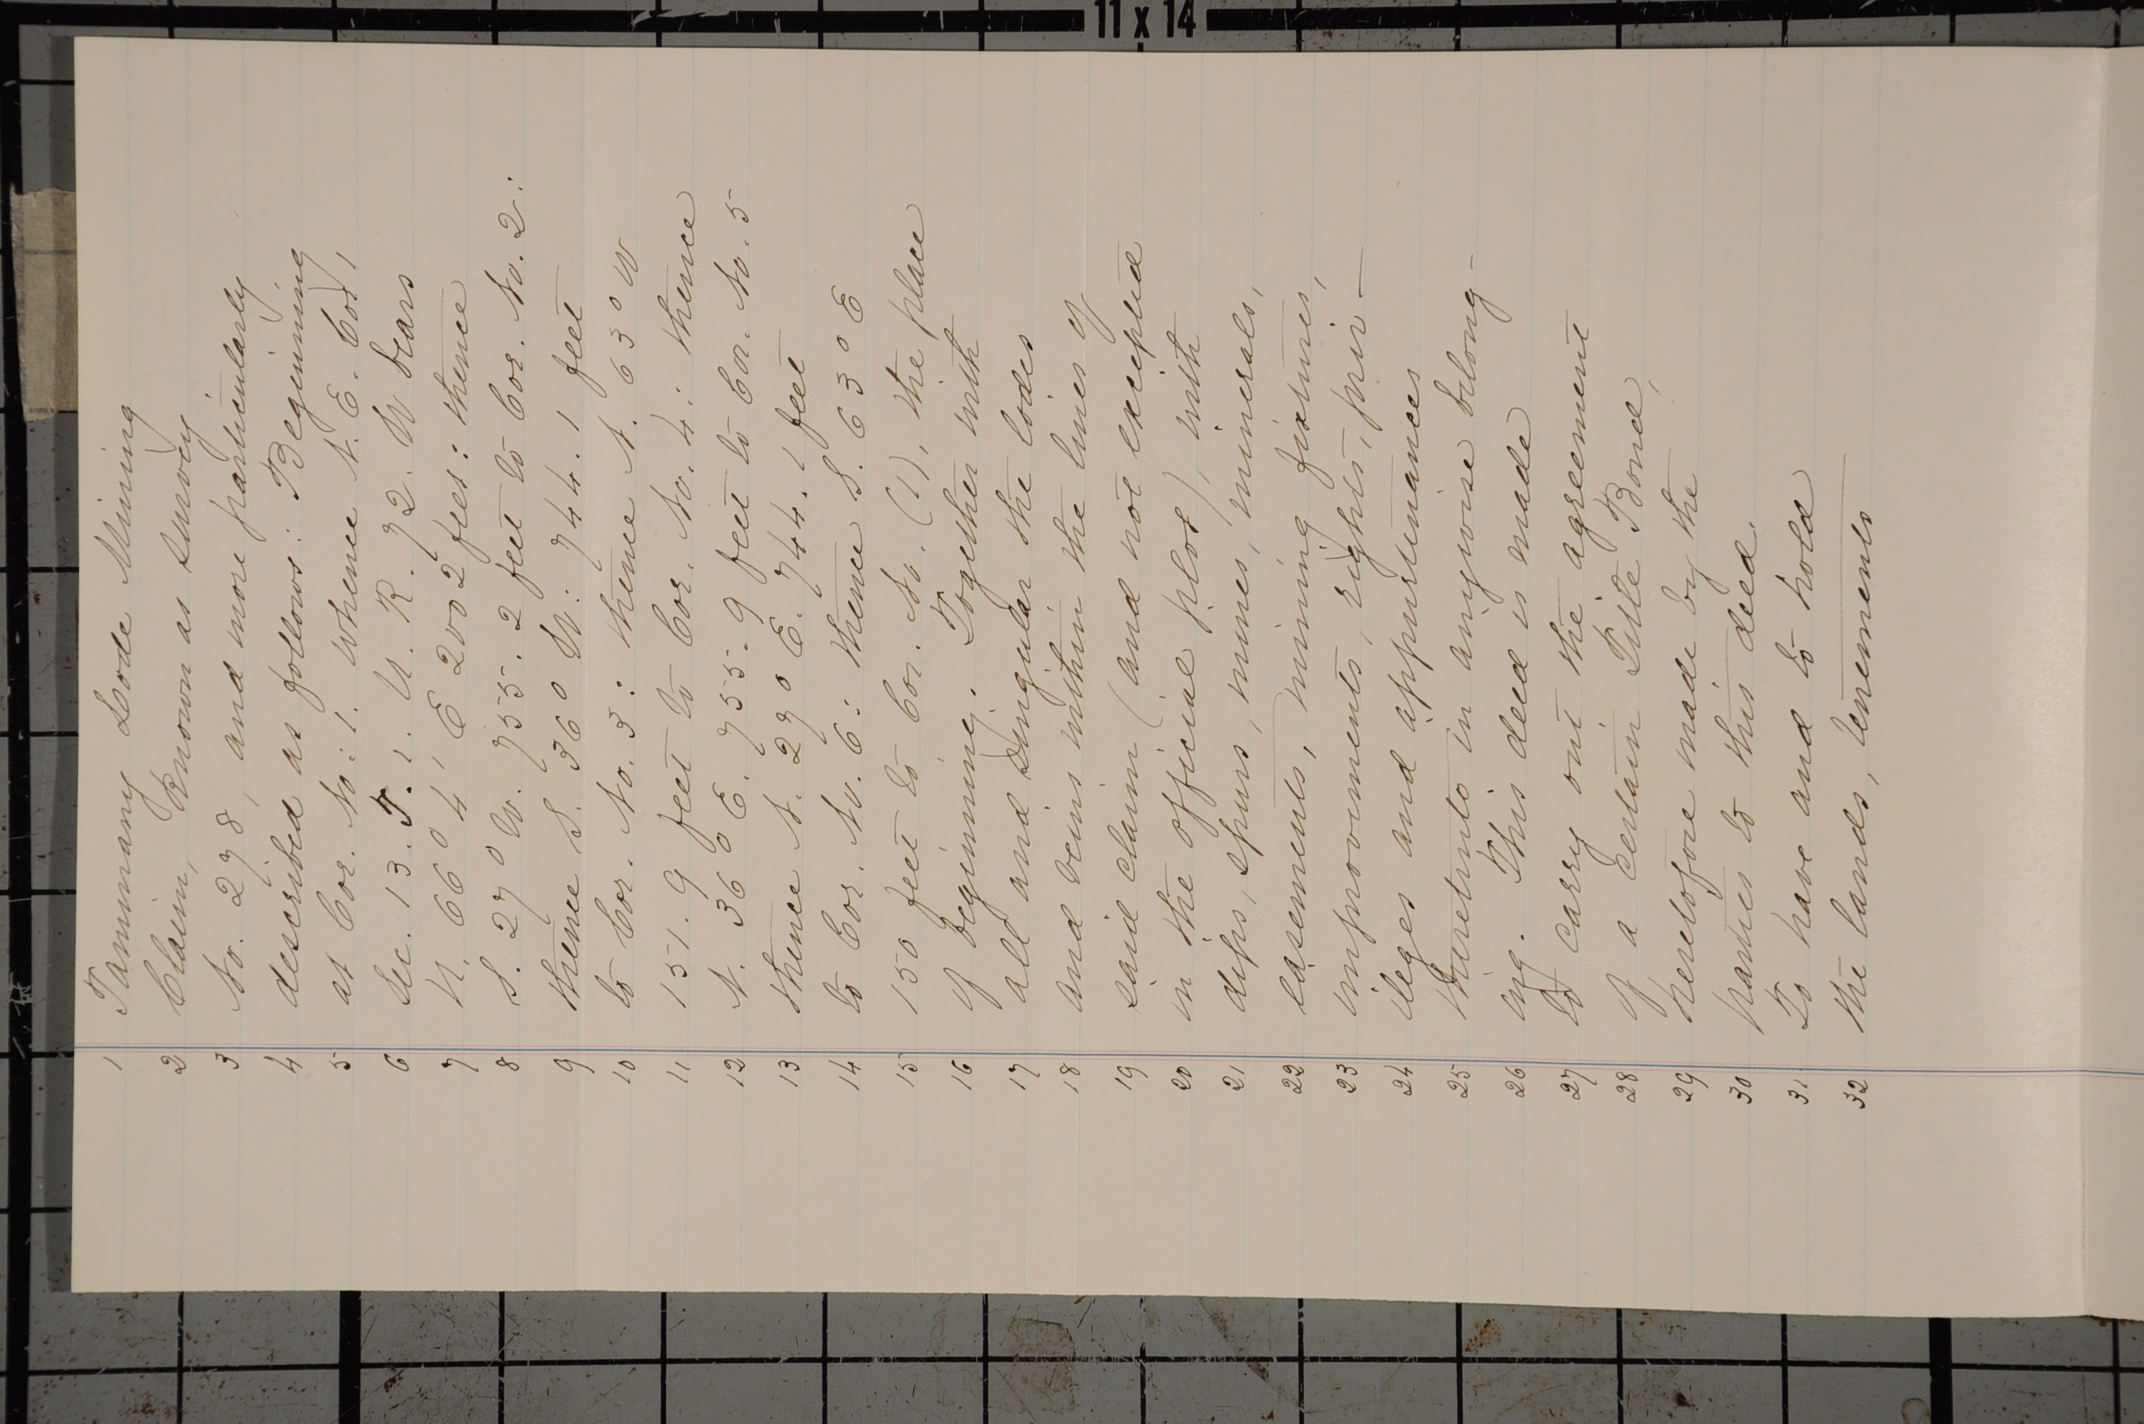 11 x 14
1 Tammany Lode Mining
2 Claim, Known as Survey
3 No. 278, and more particularly
4 described as follows: Beginning
5 at Cor. No: 1. whence N. E. Cor,
6 Sec. 13. T. 1. N. R. 72. W bears
7 N. 66° 4' E 2002 feet: thence
8 S. 27° W. 755.2 feet to Cor. No. 2:
9 thence S. 36° W: 744.1 feet
10 to Cor. No. 3: thence N. 63° W
11 151.9 feet to Cor. No. 4: thence
12 N. 36° E. 755.9 feet to Cor. No. 5
13 thence N. 27° E. 744.1 feet
14 to Cor. No. 6: thence S. 63° E
15 150 feet to Cor. No. (1), the place
16 of beginning. Together with
17 all and singular the lodes
18 and veins within the lines of
19 said claim (and not excepted
20 in the official plot), with
21 dips, spurs, mines, minerals,
22 easements, mining fixtures,
23 improvements, rights, priv-
24 ileges and appurtenances
25 thereunto in anywise belong-
26 ing. This deed is made
27 to carry out the agreement
28 of a certain Title Bond,
29 heretofore made by the
30 parties to this deed.
31 To have and to hold
32 the lands, tenements